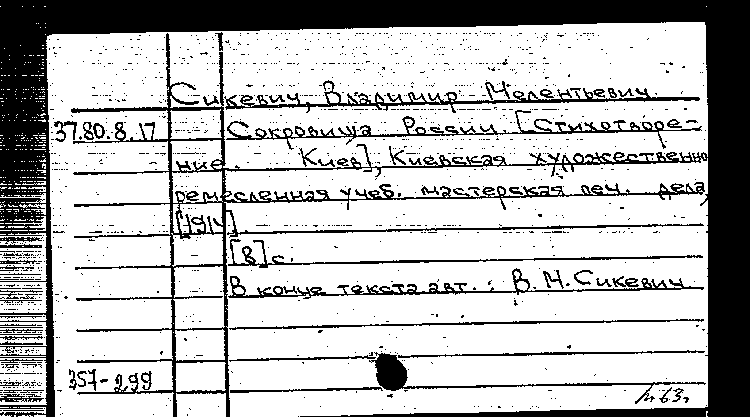 Сикевич, Владимир Мелентьевич.
37.80.8.17 Сокровища России. [Стихотворе-
ние. Киев], Киевская художественно
ремесленная учеб. мастерская печ. дела,
[1914].
[8] с.
В конце текста авт.: В. М. Сикевич
357-299